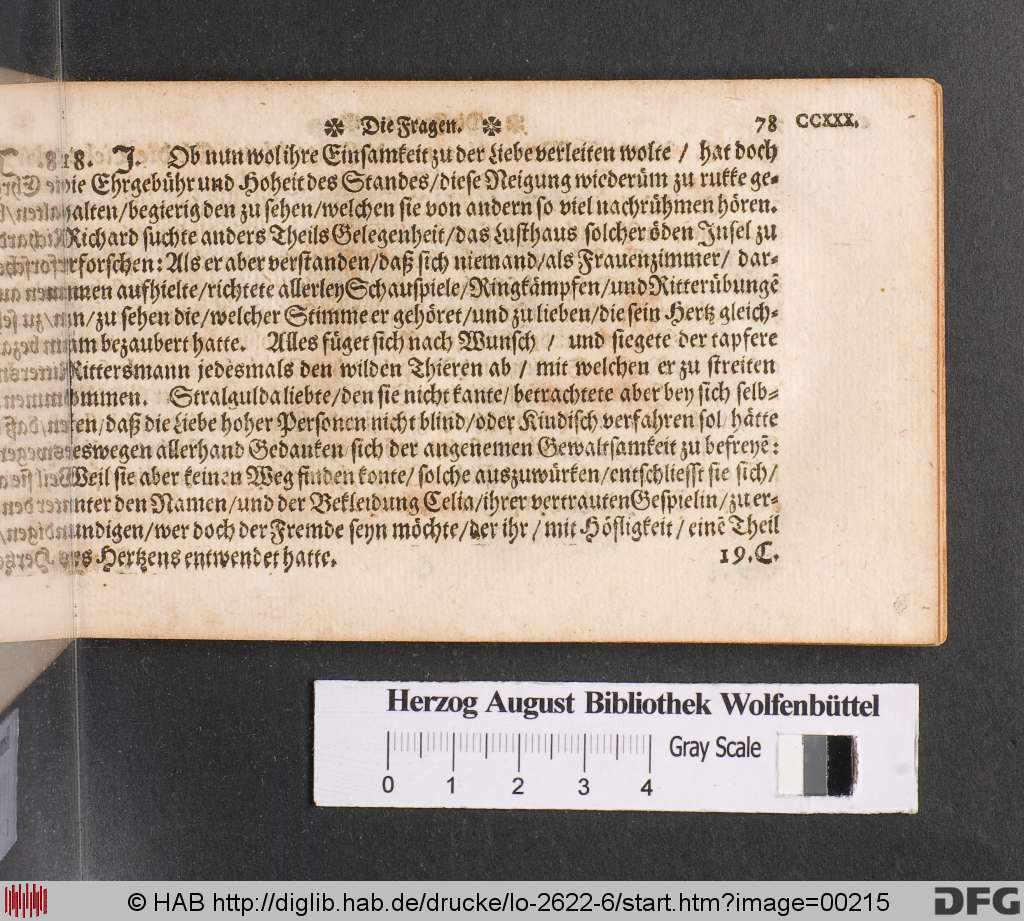 ✼ Die Fragen. ✼ 78 CCXXX.
18. J. Ob nun wol ihre Einsamkeit zu der Liebe verleiten wolte / hat doch
die Ehrgebühr und Hoheit des Standes/diese Neigung wiederüm zu rukke ge-
halten/begierig den zu sehen/welchen sie von andern so viel nachrühmen hören.
Richard suchte anders Theils Gelegenheit/das Lusthaus solcher öden Jnsel zu
erforschen: Als er aber verstanden/daß sich niemand/als Frauenzimmer/ dar-
innen aufhielte/richtete allerley Schauspiele/Ringkämpfen/und Ritterübungē
an/zu sehen die/welcher Stimme er gehöret/und zu lieben/die sein Hertz gleich-
sam bezaubert hatte. Alles füget sich nach Wunsch / und siegete der tapfere
Rittersmann jedesmals den wilden Thieren ab / mit welchen er zu streiten
kommen. Stralgulda liebte/den sie nicht kante/ betrachtete aber bey sich selb-
sten/daß die Liebe hoher Personen nicht blind/oder Kindisch verfahren sol hätte
deswegen allerhand Gedanken sich der angenemen Gewaltsamkeit zu befreyē:
Weil sie aber keinen Weg finden konte/ solche auszuwürken/entschliesst sie sich/
unter den Namen/und der Bekleidung Celia/ihrer vertrauten Gespielin/zu er-
kundigen/wer doch der Fremde seyn möchte/der ihr / mit Höfligkeit / einē Theil
des Hertzens entwendet hatte. 19. C.
Herzog August Bibliothek Wolfenbüttel
0 1 2 3 4 Gray Scale
© HAB http://diglib.hab.de/drucke/lo-2622-6/start.htm?image=00215 DFG